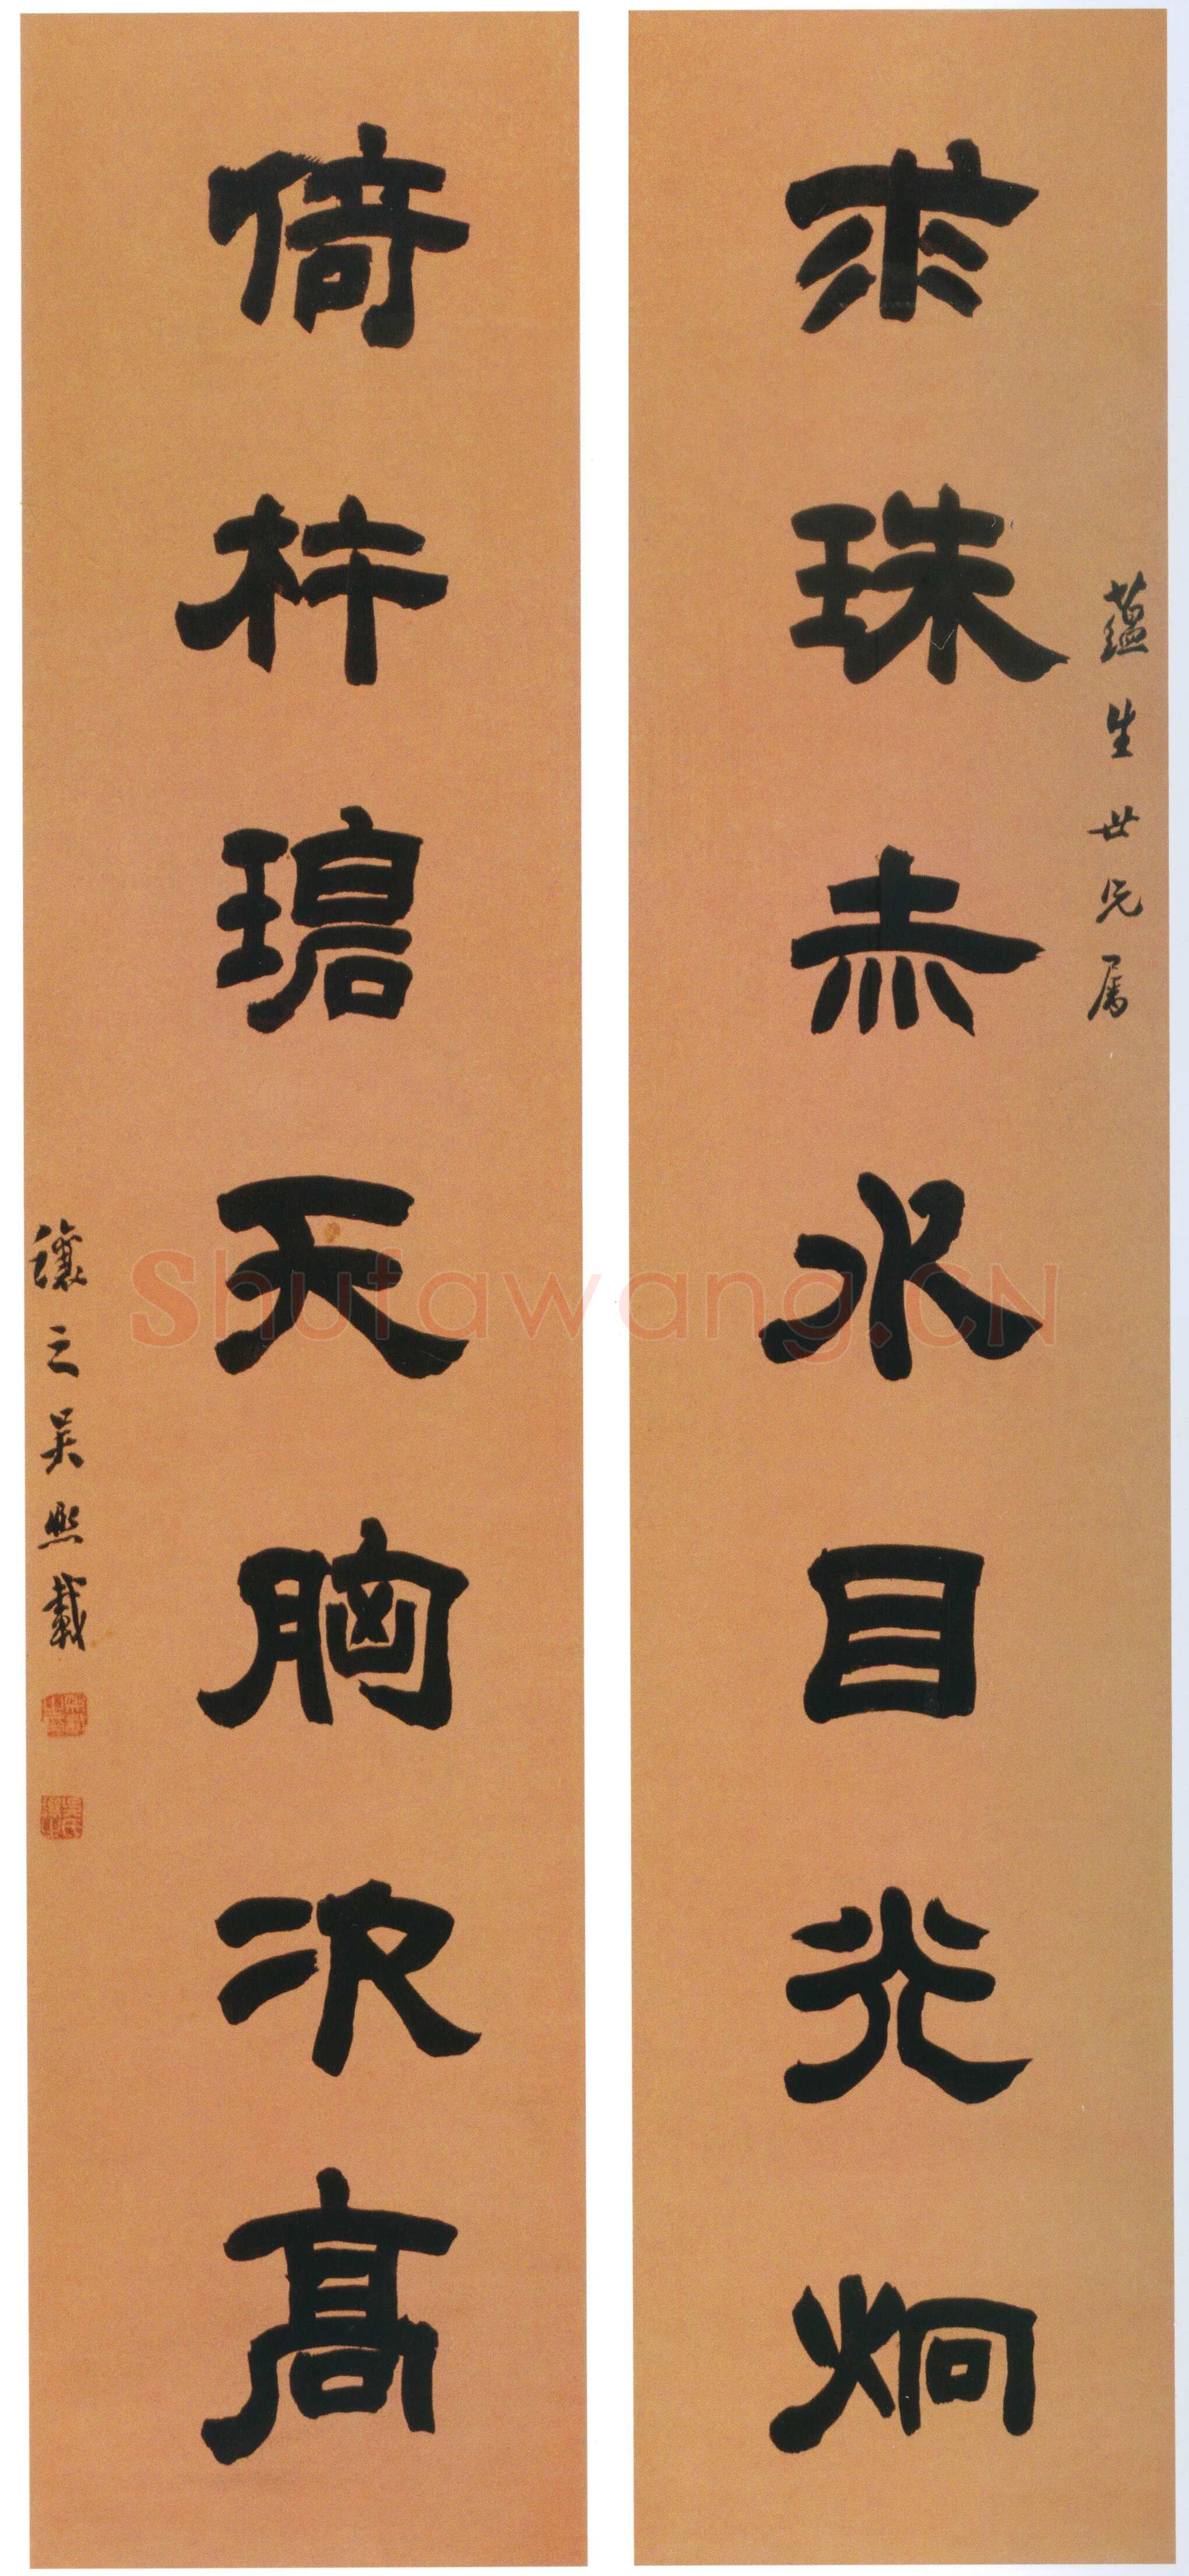 蕴生世兄属
求珠赤水目光炯
倚杵碧天胸次高
让之吴熙载
Shufawang.CN